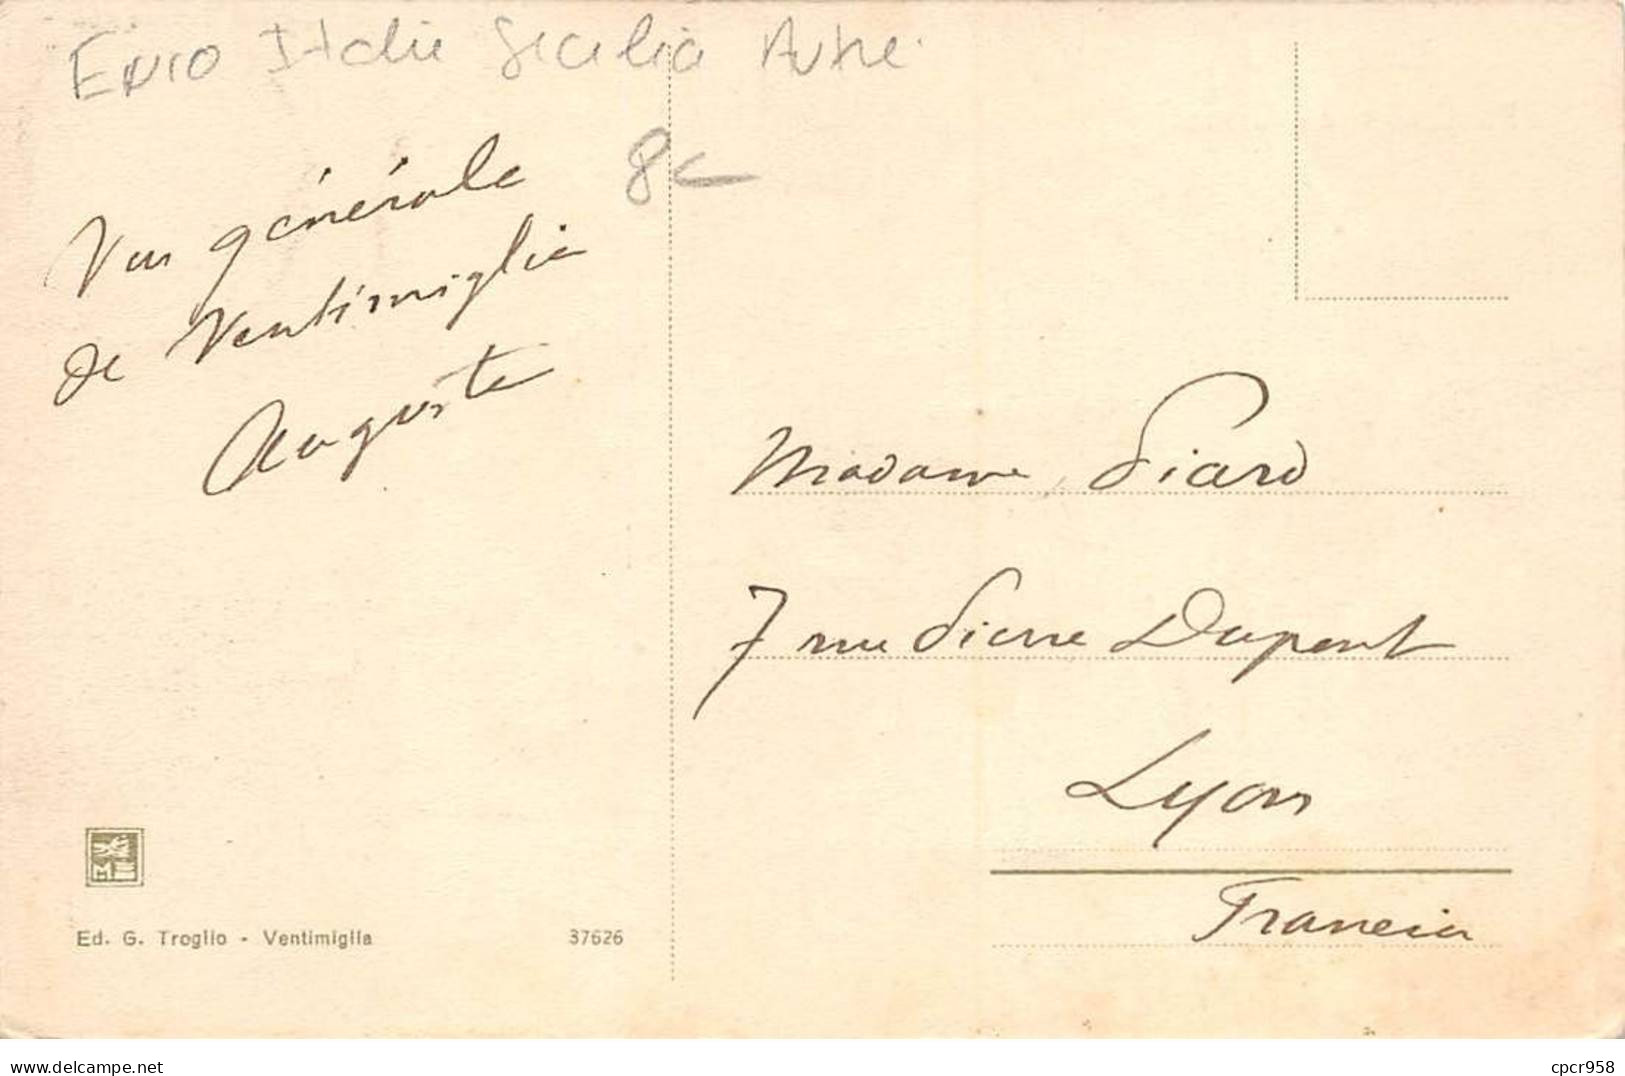 Euro Italie Sicilia Autre
8€
Vue générale
de Ventimiglia
Auguste
Madame Piard
7 rue Pierre Dupont
Lyon
Francia
Ed. G. Troglio - Ventimiglia 37626
delcampe.net
cpcr958